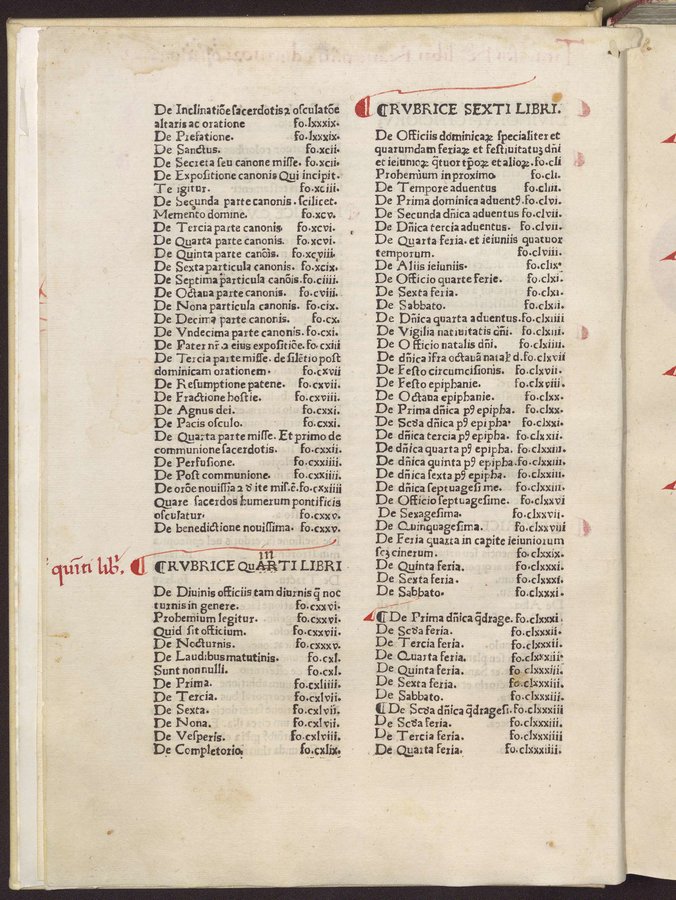 De Inclinatiōe sacerdotis ⁊ osculatōe
altaris ac oratione fo.lxxxix.
De Prefatione. fo.lxxxix.
De Sanctus. fo.xcii.
De Secreta seu canone misse. fo.xcii.
De Expositione canonis Qui incipit.
Te igitur. fo.xciii.
De Secunda parte canonis. scilicet.
Memento domine. fo.xcv.
De Tercia parte canonis fo.xcvi.
De Quarta parte canonis. fo.xcvi.
De Quinta parte canōis. fo.xcviii.
De Sexta particula canonis. fo.xcix.
De Septima particula canōis. fo.ciiii.
De Octaua parte canonis. fo.cviii.
De Nona particula canonis. fo.cix.
De Decima parte canonis. fo.cx.
De Vndecima parte canonis. fo.cxi.
De Pater nr̄ ⁊ eius expositiōe. fo.cxiii
De Tercia parte misse. de silētio post
dominicam orationem. fo.cxvii
De Resumptione patene. fo.cxvii.
De Fractione hostie. fo.cxviii.
De Agnus dei. fo.cxxi.
De Pacis osculo. fo.cxxi.
De Quarta parte misse. Et primo de
communione sacerdotis. fo.cxxii.
De Perfusione. fo.cxxiiii.
De Post communione. fo.cxxiiii.
De orōe nouissīa ⁊ d̄ ite miss̄ē. fo.cxxiiii
Quare sacerdos humerum pontificis
osculatur. fo.cxxv.
De benedictione nouissima. fo.cxxv.
quīti lib'.
in
¶ RVBRICE QuARTI LIBRI
De Diuinis officiis tam diurnis q̄ noc
turnis in genere. fo.cxxvi.
Prohemium legitur. fo.cxxvi.
Quid sit officium. fo.cxxvii.
De Nocturnis. fo.cxxxv.
De Laudibus matutinis. fo.cxl.
Sunt nonnulli. fo.cxl.
De Prima. fo.cxliiii.
De Tercia. fo.cxlvi.
De Sexta. fo.cxlvii.
De Nona. fo.cxlvii.
De Vesperis. fo.cxlviii.
De Completorio. fo.cxlix.
¶ RVBRICE SEXTI LIBRI.
De Officiis dominicaꝝ specialiter et
quarumdam feriaꝝ et festiuitatuꝫ dn̄i
et ieiunioꝝ q̄tuor tp̄oꝝ et alioꝝ. fo.cli
Prohemium in proximo fo.cli.
De Tempore aduentus fo.cliii.
De Prima dominica aduentꝰ. fo.clvi.
De Secunda dn̄ica aduentus fo.clvii.
De Dn̄ica tercia aduentus. fo.clvii.
De Quarta feria. et ieiuniis quatuor
temporum. fo.clviii.
De Aliis ieiuniis. fo.clix.
De Officio quarte ferie. fo.clxi.
De Sexta feria. fo.clxi.
De Sabbato. fo.clxii.
De Dn̄ica quarta aduentus. fo.clxiii
De Vigilia natiuitatis dn̄i. fo.clxiii
De Officio natalis dn̄i. fo.clxiiii.
De dn̄ica īfra octauā natal' d. fo.clxvii
De Festo circumcisionis. fo.clxvii.
De Festo epiphanie. fo.clxviii.
De Octaua epiphanie. fo.clxx.
De Prima dn̄ica pꝰ epipha. fo.clxx.
De Scd̄a dn̄ica pꝰ epipha. fo.clxxi.
De dn̄ica tercia pꝰ epipha. fo.clxxii.
De dn̄ica quarta pꝰ epipha. fo.clxxii.
De dn̄ica quinta pꝰ epipha. fo.clxxiii.
De dn̄ica sexta pꝰ epipha. fo.clxxiii.
De dn̄ica septuagesime. fo.clxxiii.
De Officio septuagesime. fo.clxxvi
De Sexagesima. fo.clxxvii
De Quinquagesima. fo.clxxviii
De Feria quarta in capite ieiuniorum
scꝫ cinerum. fo.clxxix.
De Quinta feria. fo.clxxxi.
De Sexta feria. fo.clxxxi.
De Sabbato. fo.clxxxi.
¶ De Prima dn̄ica q̄drage. fo.clxxxi.
De Scd̄a feria. fo.clxxxii.
De Tercia feria. fo.clxxxii.
De Quarta feria. fo.clxxxiii.
De Quinta feria. fo.clxxxiii.
De Sexta feria. fo.clxxxiii.
De Sabbato. fo.clxxxiii.
¶ De Scd̄a dn̄ica q̄dragesi. fo.clxxxiii
De Scd̄a feria. fo.clxxxiii.
De Tercia feria. fo.clxxxiiii
De Quarta feria. fo.clxxxiiii.